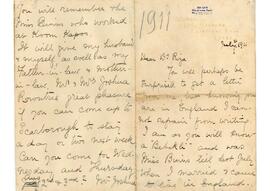 You will remember the
Miss Binns who worked
at Room Kapoo.
It will give my husband
& myself, as well as my
father-in-law & mother
-in-law Mr & Mrs Joshua
Rowntree great pleasure
if you can come up to
Scarborough to stay
a day or two next week
Can you come for Wed-
nesday and Thursday
Mrs Joshua
1911
July
Dear Dr Riza
You will perhaps be
surprised to get a letter
you are
in England I can-
not refrain from writing
I am as you will know
a Bahai - and was
Miss Binns till last July
when I married I came
to live in England.